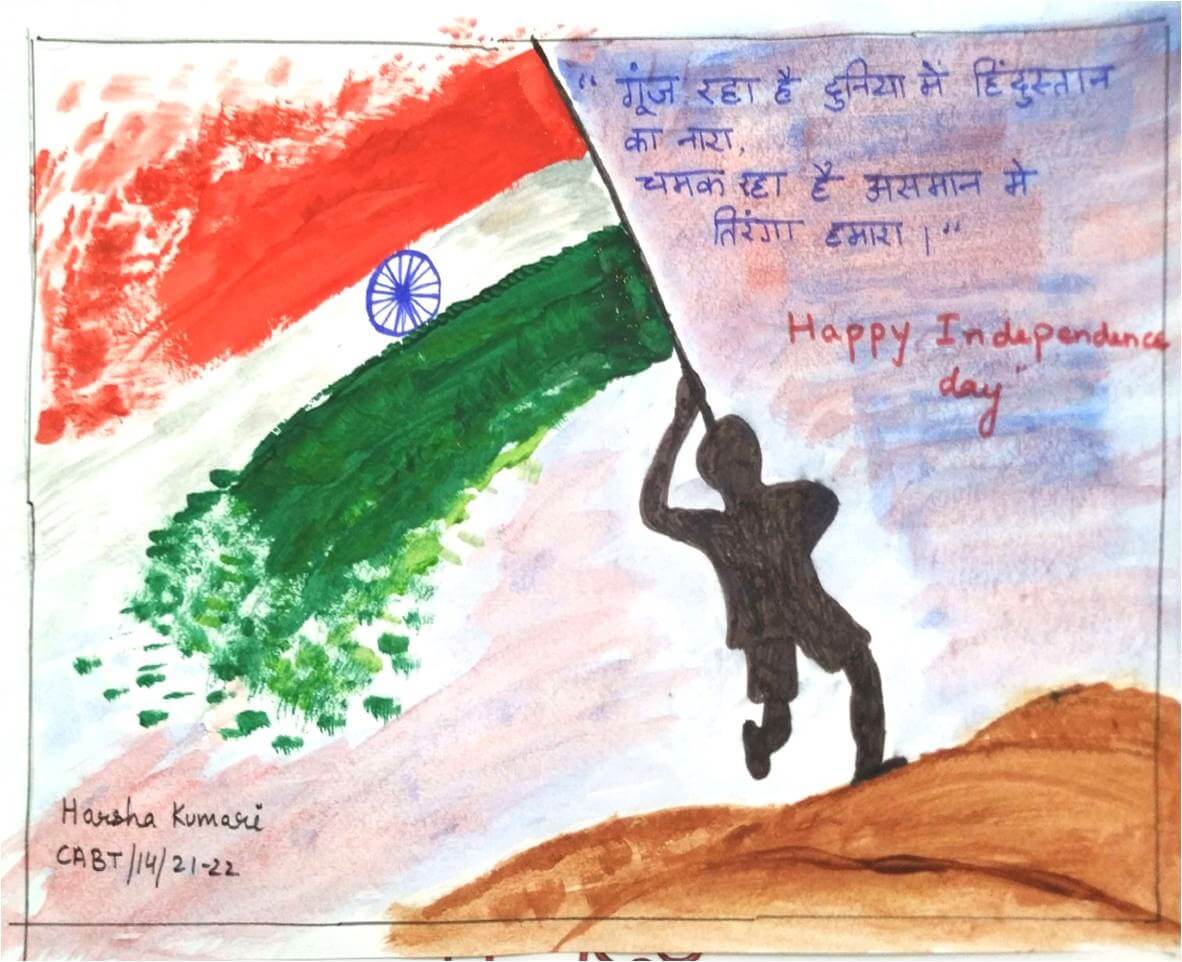 “ गूंज रहा है दुनिया में हिंदुस्तान
का नारा,
चमक रहा है असमान मे
तिरंगा हमारा।“
Happy Independence
day"
Harsha Kumari
CABT/14/21-22